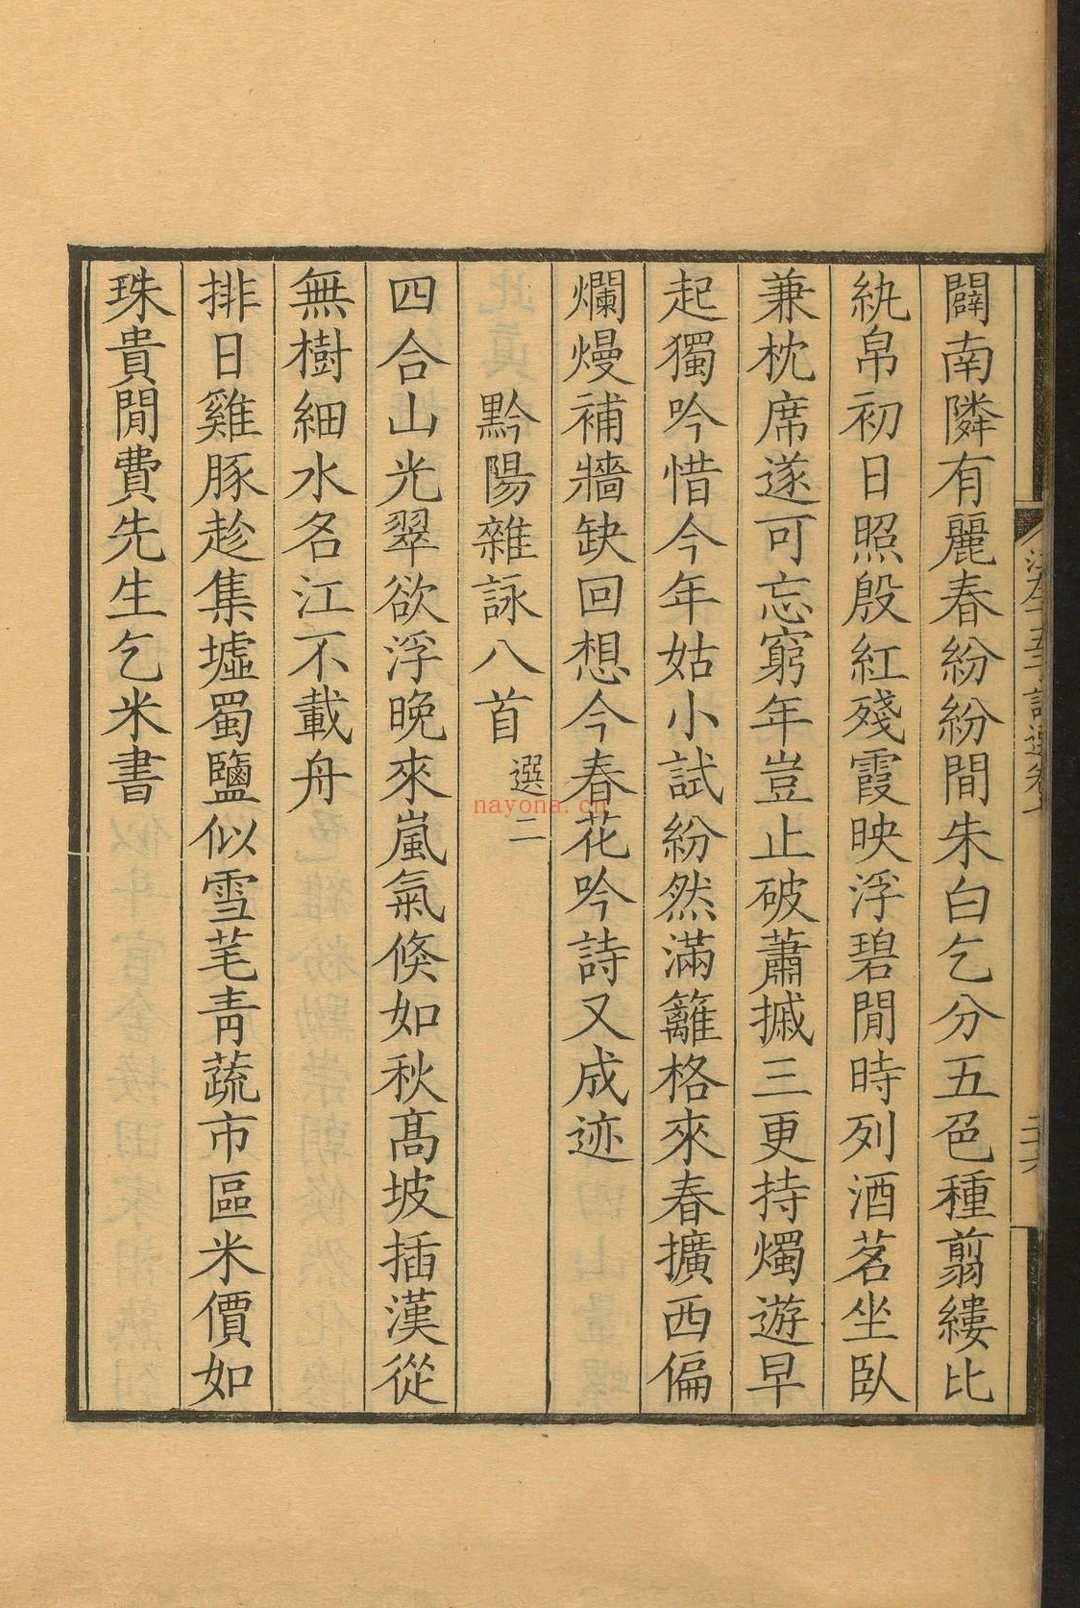 闢南隣有麗春紛紛間朱白乞分五色種翦縷比
紈帛初日照殷紅殘霞映浮碧閒時列酒茗坐臥
兼枕席遂可忘窮年豈止破蕭摵三更持燭遊早
起獨吟惜今年姑小試紛然滿籬格來春擴西偏
爛熳補牆缺回想今春花吟詩又成迹
黔陽雜詠八首選二
四合山光翠欲浮晚來嵐氣倏如秋高坡插漢從
無樹細水名江不載舟
排日雞豚趁集墟蜀鹽似雪芼青蔬市區米價如
珠貴閒費先生乞米書
nayona.cn